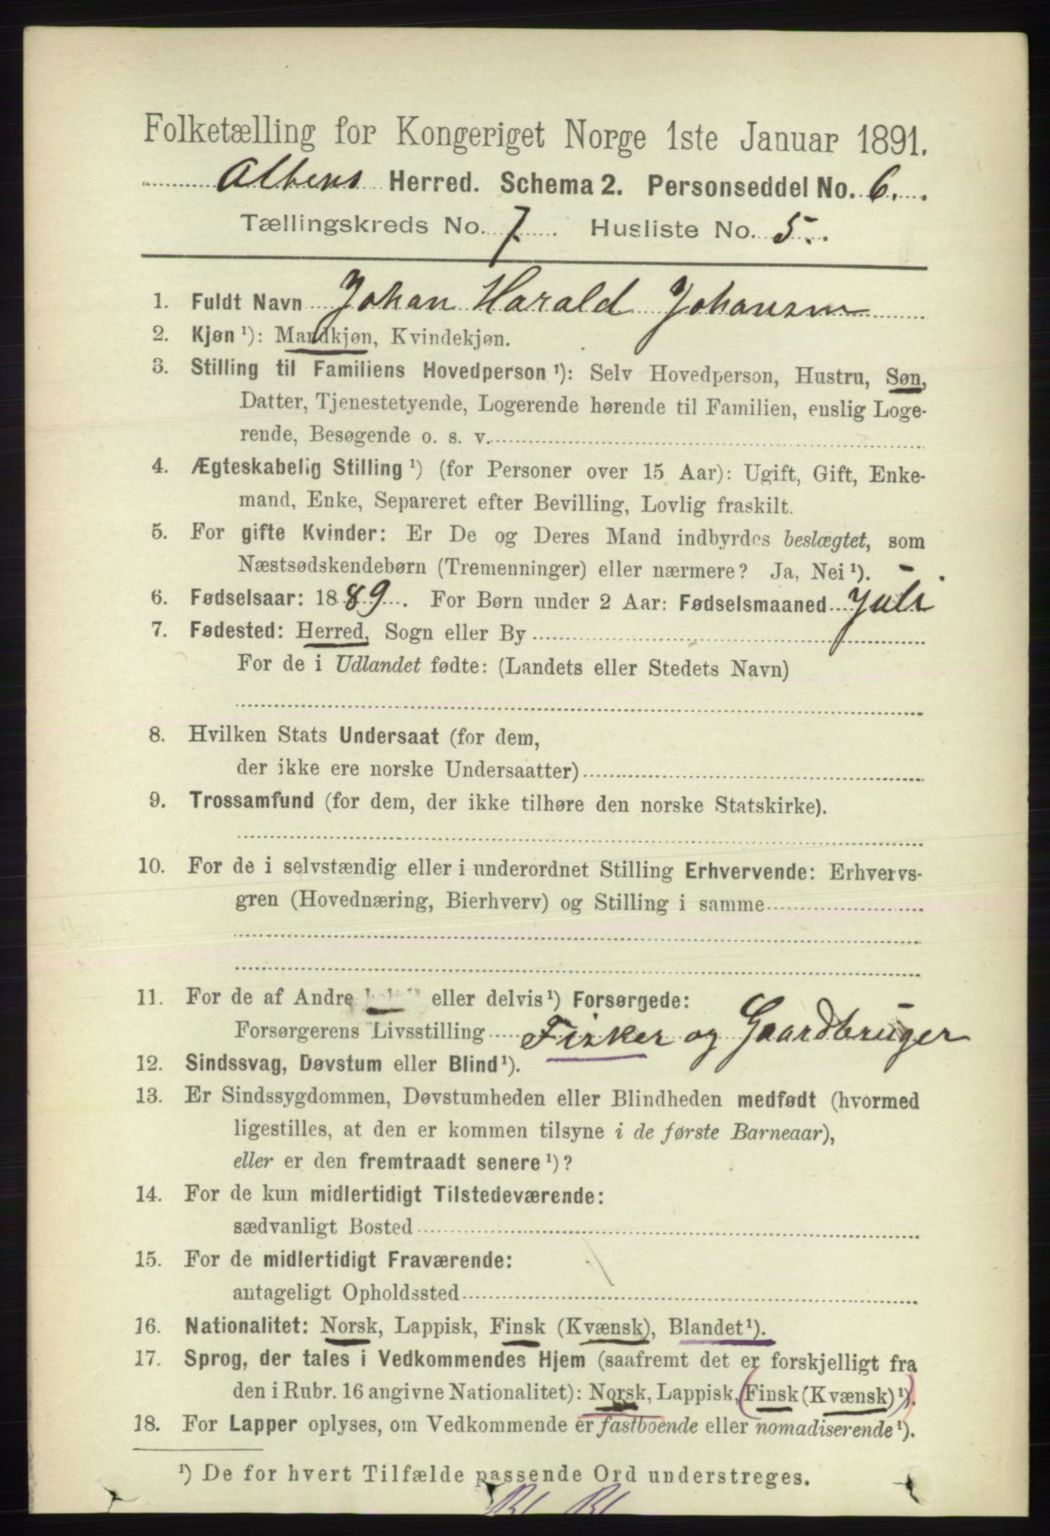 Folketælling for Kongeriget Norge 1ste Januar 1891.
Altens Herred. Schema 2. Personseddel No. 6.
Tællingskreds No. 7. Husliste No. 5.
1. Fuldt Navn Johan Harald Johansen
2. Kjøn ¹): Mandkjøn, Kvindekjøn.
3. Stilling til Familiens Hovedperson ¹): Selv Hovedperson, Hustru, Søn,
Datter, Tjenestetyende, Logerende hørende til Familien, enslig Loge-
rende, Besøgende o. s. v.
4. Ægteskabelig Stilling ¹) (for Personer over 15 Aar): Ugift, Gift, Enke-
mand, Enke, Separeret efter Bevilling, Lovlig fraskilt.
5. For gifte Kvinder: Er De og Deres Mand indbyrdes beslægtet, som
Næstsødskendebørn (Tremenninger) eller nærmere? Ja, Nei ¹).
6. Fødselsaar: 1889. For Børn under 2 Aar: Fødselsmaaned Juli
7. Fødested: Herred, Sogn eller By
For de i Udlandet fødte: (Landets eller Stedets Navn)
8. Hvilken Stats Undersaat (for dem,
der ikke ere norske Undersaatter)
9. Trossamfund (for dem, der ikke tilhøre den norske Statskirke).
10. For de i selvstændig eller i underordnet Stilling Erhvervende: Erhvervs-
gren (Hovednæring, Bierhverv) og Stilling i samme
11. For de af Andre eller delvis ¹) Forsørgede:
Forsørgerens Livsstilling Fisker og Gaardbruger
12. Sindssvag, Døvstum eller Blind ¹).
13. Er Sindssygdommen, Døvstumheden eller Blindheden medfødt (hvormed
ligestilles, at den er kommen tilsyne i de første Barneaar),
eller er den fremtraadt senere ¹)?
14. For de kun midlertidigt Tilstedeværende:
sædvanligt Bosted
15. For de midlertidigt Fraværende:
antageligt Opholdssted
16. Nationalitet: Norsk, Lappisk, Finsk (Kvænsk), Blandet ¹).
17. Sprog, der tales i Vedkommendes Hjem (saafremt det er forskjelligt fra
den i Rubr. 16 angivne Nationalitet): Norsk, Lappisk, Finsk (Kvænsk) ¹).
18. For Lapper oplyses, om Vedkommende er fastboende eller nomadiserende ¹).
¹) De for hvert Tilfælde passende Ord understreges.
Bl. Bl.